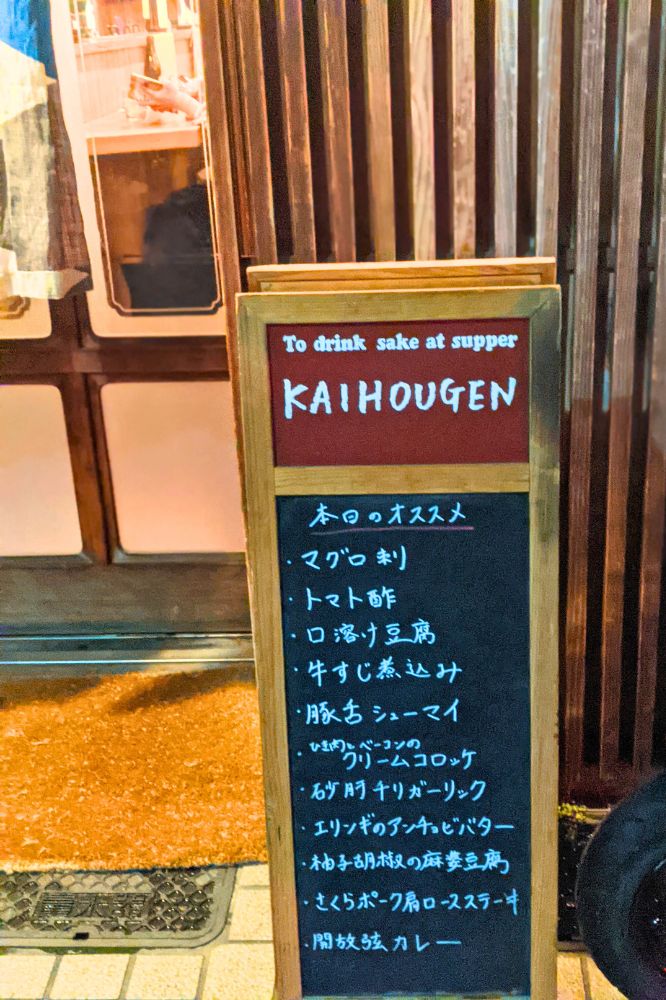 To drink sake at supper
KAIHOUGEN
本日のオススメ
・マグロ刺
・トマト酢
・口溶け豆腐
・牛すじ煮込み
・豚舌シューマイ
・ひき肉とベーコンの
クリームコロッケ
・砂肝チリガーリック
・エリンギのアンチョビバター
・柚子胡椒の麻婆豆腐
・さくらポーク肩ロースステーキ
・開放弦カレー